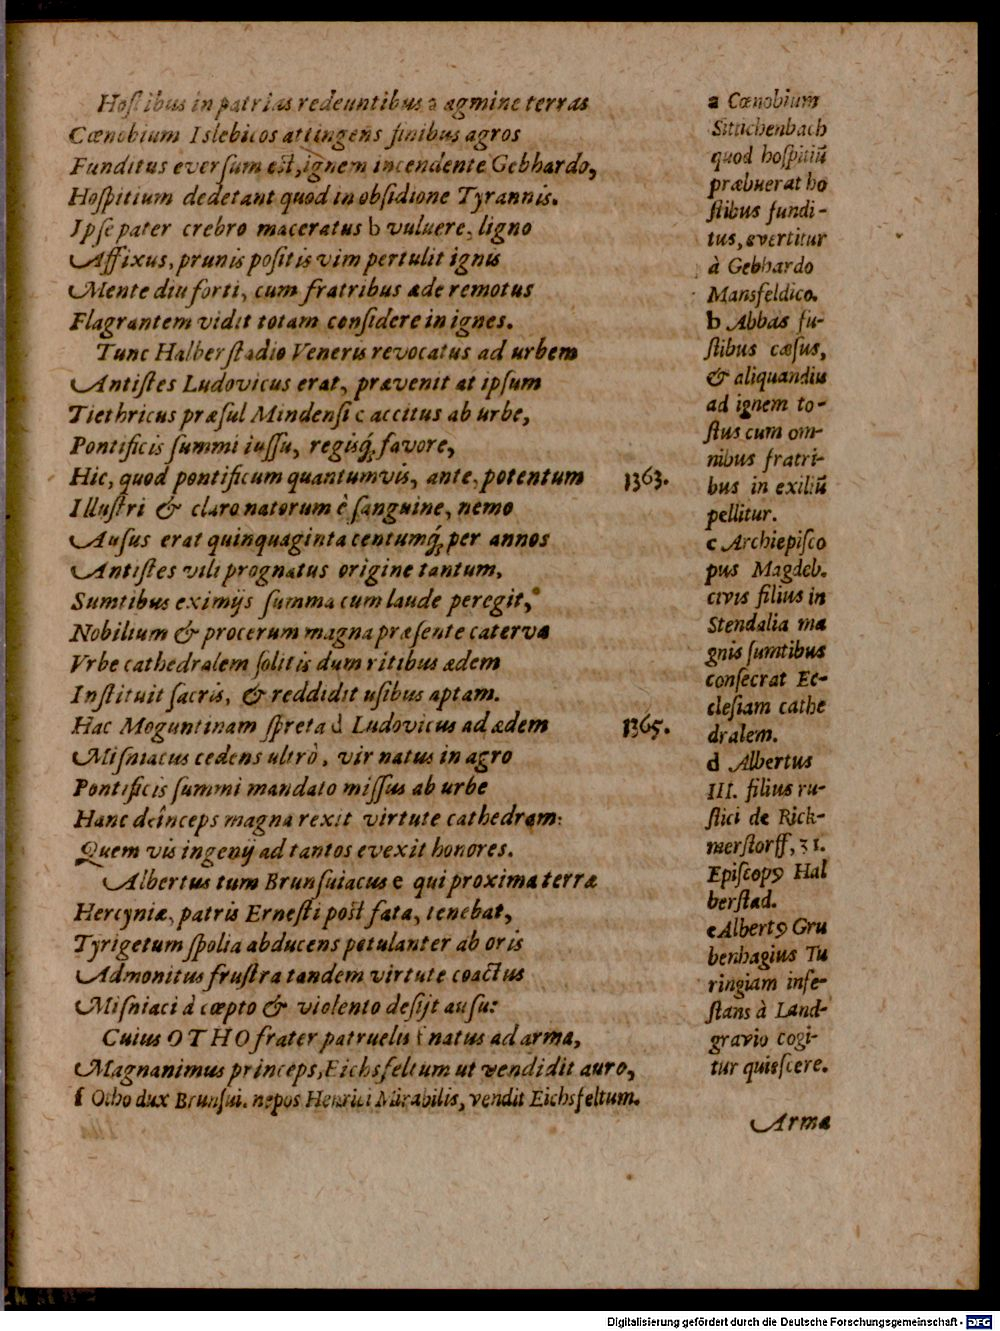 Hoſtibus in patrias redeuntibus a agmine terras
Cœnobium Islebicos attingens finibus agros
Funditus everſum est, ignem incendente Gebhardo,
Hoſpitium dederant quod in obſidione Tyrannis.
Ipſe pater crebro maceratus b vulnere, ligno
Affixus, prunis poſitis vim pertulit ignis
Mente diu forti, cum fratribus æde remotus
Flagrantem vidit totam conſidere in ignes.
Tunc Halberſtadio Veneris revocatus ad urbem
Antiſtes Ludovicus erat, prævenit at ipſum
Tiethricus præſul Mindenſi c accitus ab urbe,
Pontificis ſummi iuſſu, regisq́; favore,
Hic, quod pontificum quantumvis, ante, potentum 1363.
Illuſtri & claro natorum è ſanguine, nemo
Auſus erat quinquaginta centumq́; per annos
Antiſtes vili prognatus origine tantum,
Sumtibus eximijs ſumma cum laude peregit,
Nobilium & procerum magna præſente caterva
Vrbe cathedralem ſolitis dum ritibus ædem
Inſtituit ſacris, & reddidit uſibus aptam.
Hac Moguntinam ſpreta d Ludovicus ad ædem 1365.
Miſniacus cedens ultrò, vir natus in agro
Pontificis ſummi mandato miſſus ab urbe
Hanc deînceps magna rexit virtute cathedram:
Quem vis ingenij ad tantos evexit honores.
Albertus tum Brunſuiacus e qui proxima terræ
Hercyniæ, patris Erneſti post fata, tenebat,
Tyrigetum ſpolia abducens petulanter ab oris
Admonitus fruſtra tandem virtute coactus
Miſniaci à cœpto & violento deſijt auſu:
Cuius OTHO frater patruelis f natus ad arma,
Magnanimus princeps, Eichsfeltum ut vendidit auro,
f Otho dux Brunſui. nepos Henrici Mirabilis, vendit Eichsfeltum.
a Cœnobium
Sittichenbach
quod hoſpitiũ
præbuerat ho
ſtibus fundi-
tus, evertitur
à Gebhardo
Mansfeldico.
b Abbas fu-
ſtibus cæſus,
& aliquandiu
ad ignem to-
ſtus cum om-
nibus fratri-
bus in exiliũ
pellitur.
c Archiepiſco
pus Magdeb.
civis filius in
Stendalia ma
gnis ſumtibus
conſecrat Ec-
cleſiam cathe
dralem.
d Albertus
III. filius ru-
ſtici de Rick-
merſtorff, 31.
Epiſcopꝰ Hal
berſtad.
e Albertꝰ Gru
benhagius Tu
ringiam infe-
ſtans à Land-
gravio cogi-
tur quieſcere.
Arma
Digitalisierung gefördert durch die Deutsche Forschungsgemeinschaft - DFG